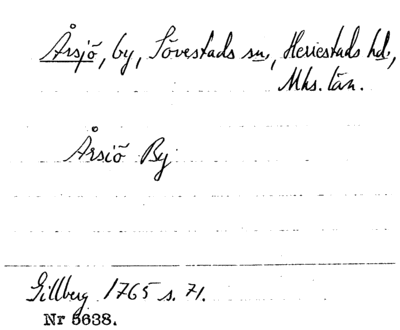 Årsjö, by, Sövestads sn, Herrestads hd,
Mhs. län.
Årsiö By
Gillberg 1765 s. 71.
Nr 5638.